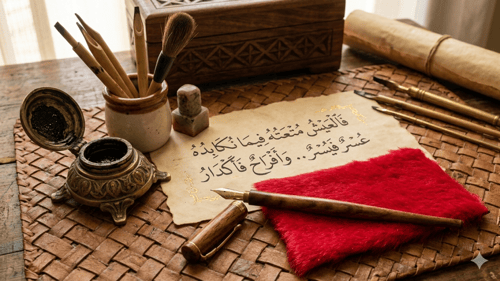 فَالْعَيْشُ مُتْعَتُهُ فِيمَا نُكَابِدُهُ
عُسْرٌ فَيُسْرٌ.. وَأَفْرَاحٌ فَأَكْدَارُ